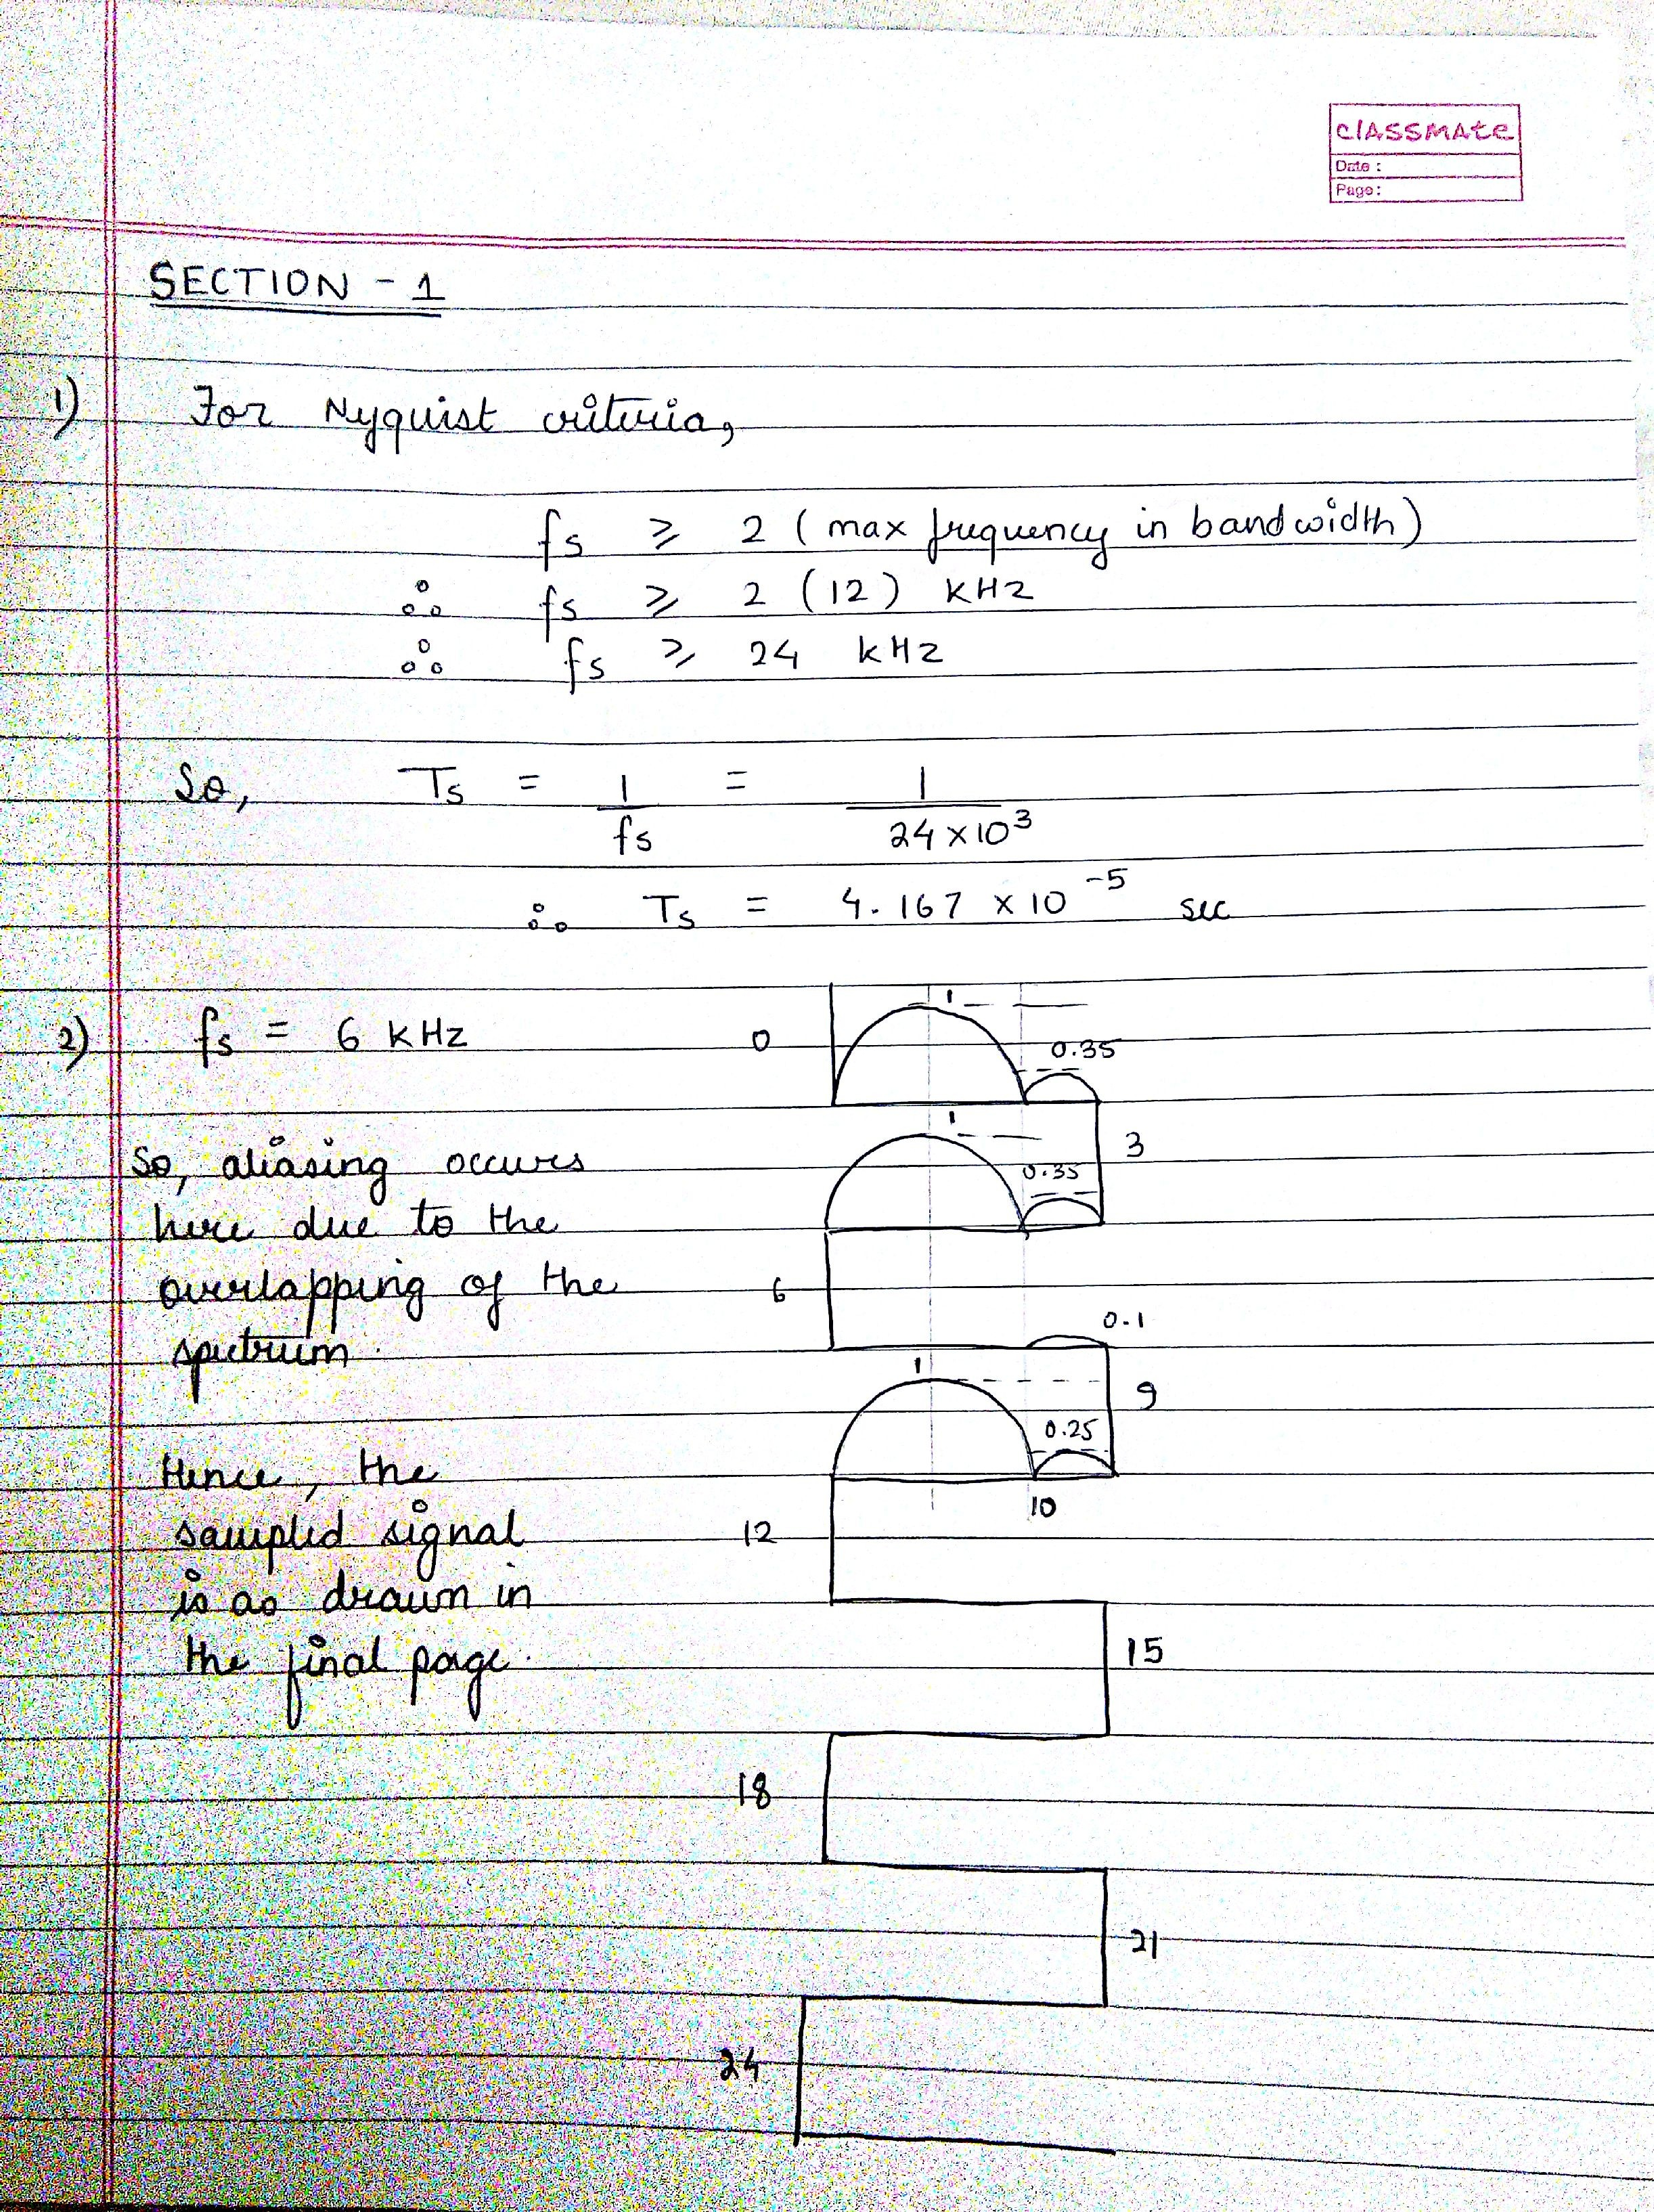 CLASSMATE
Date :
Page :
SECTION - 1
1) For Nyquist criteria,
fs ≥ 2 (max frequency in bandwidth)
∴ fs ≥ 2 (12) kHz
∴ fs ≥ 24 kHz
So, Ts = 1/fs = 1/24×10³
∴ Ts = 4.167 × 10⁻⁵ sec
2) fs = 6 kHz
So, aliasing occurs
here due to the
overlapping of the
spectrum.
Hence, the
sampled signal
is as drawn in
the final page.
1
0
0.35
1
3
0.35
6
0.1
1
9
0.25
10
12
15
18
21
24